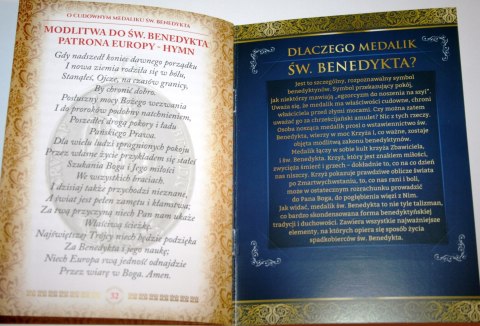 O CUDOWNYM MEDALIKU ŚW. BENEDYKTA
MODLITWA DO ŚW. BENEDYKTA
PATRONA EUROPY - HYMN
Gdy nadszedł koniec dawnego porządku
I nowa ziemia rodziła się w bólu,
Stanąłeś, Ojcze, na czasów granicy,
By chronić dobro.
Posłuszny mocy Bożego wezwania
I do proroków podobny natchnieniem,
Poszedłeś drogą pokory i ładu
Pańskiego Prawa.
Dla wielu ludzi spragnionych pokoju
Przez własne życie przykładem się stałeś
Szukania Boga i Jego miłości
We wszystkich braciach.
I dzisiaj także przychodzi nieznane,
A świat jest pełen zamętu i kłamstwa;
Za twą przyczyną niech Pan nam ukaże
Właściwą ścieżkę.
Najświętszej Trójcy niech będzie podzięka
Za Benedykta i jego naukę;
Niech Europa swą jedność odnajdzie
Przez wiarę w Boga. Amen.
32
DLACZEGO MEDALIK
ŚW. BENEDYKTA?
Jest to szczególny, rozpoznawalny symbol
benedyktynów. Symbol przekazujący pokój,
jak niektórzy mawiają „egzorcyzm do noszenia na szyi".
Uważa się, że medalik ma właściwości cudowne, chroni
właściciela przed złymi mocami. Czy można zatem
uważać go za chrześcijański amulet? Nic z tych rzeczy.
Osoba nosząca medalik prosi o wstawiennictwo św.
Benedykta, wierzy w moc Krzyża i, co ważne, sostaje
objęta modlitwą zakonu benedyktynów.
Medalik łączy w sobie kult krzyża Zbawiciela,
i św. Benedykta. Krzyż, który jest znakiem miłości,
zwycięża śmierć i grzech – dokładnie to, co na co dzień
nas niszczy. Krzyż pokazuje prawdziwe oblicze świata
po Zmartwychwstaniu, to, co nas rani i boli,
może w ostatecznym rozrachunku prowadzić
do Pana Boga, do pogłębienia więzi z Nim.
Jak widać, medalik św. Benedykta to nie tyle talizman,
co bardzo skondensowana forma benedyktyńskiej
tradycji i duchowości. Zawiera wszystkie najważniejsze
elementy, na których opiera się sposób życia
spadkobierców św. Benedykta.